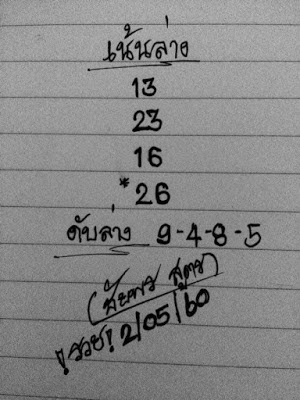 เน้นล่าง
13
23
16
*26
ดับล่าง 9-4-8-5
(ชัยพร สูตร)
!รวย! 2/05/60